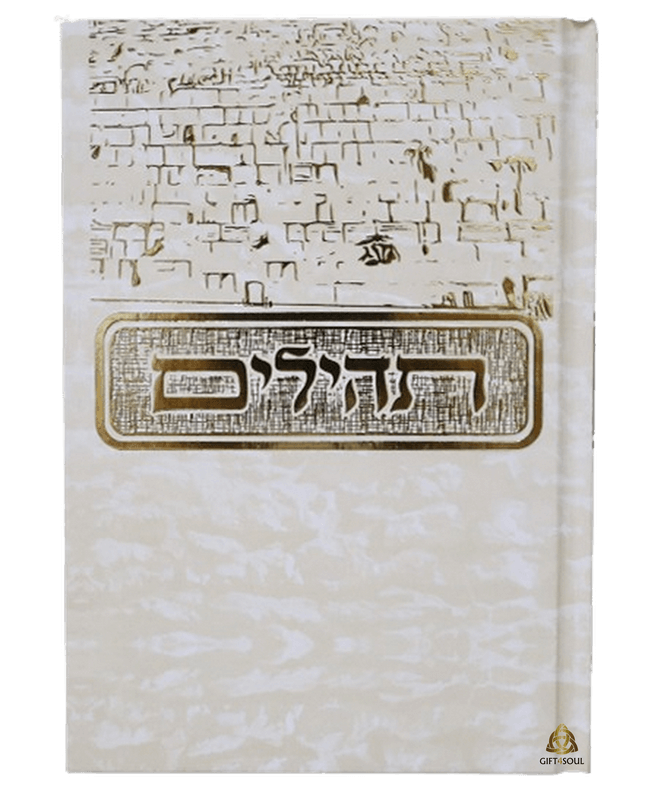 תהילים
GIFT4SOUL